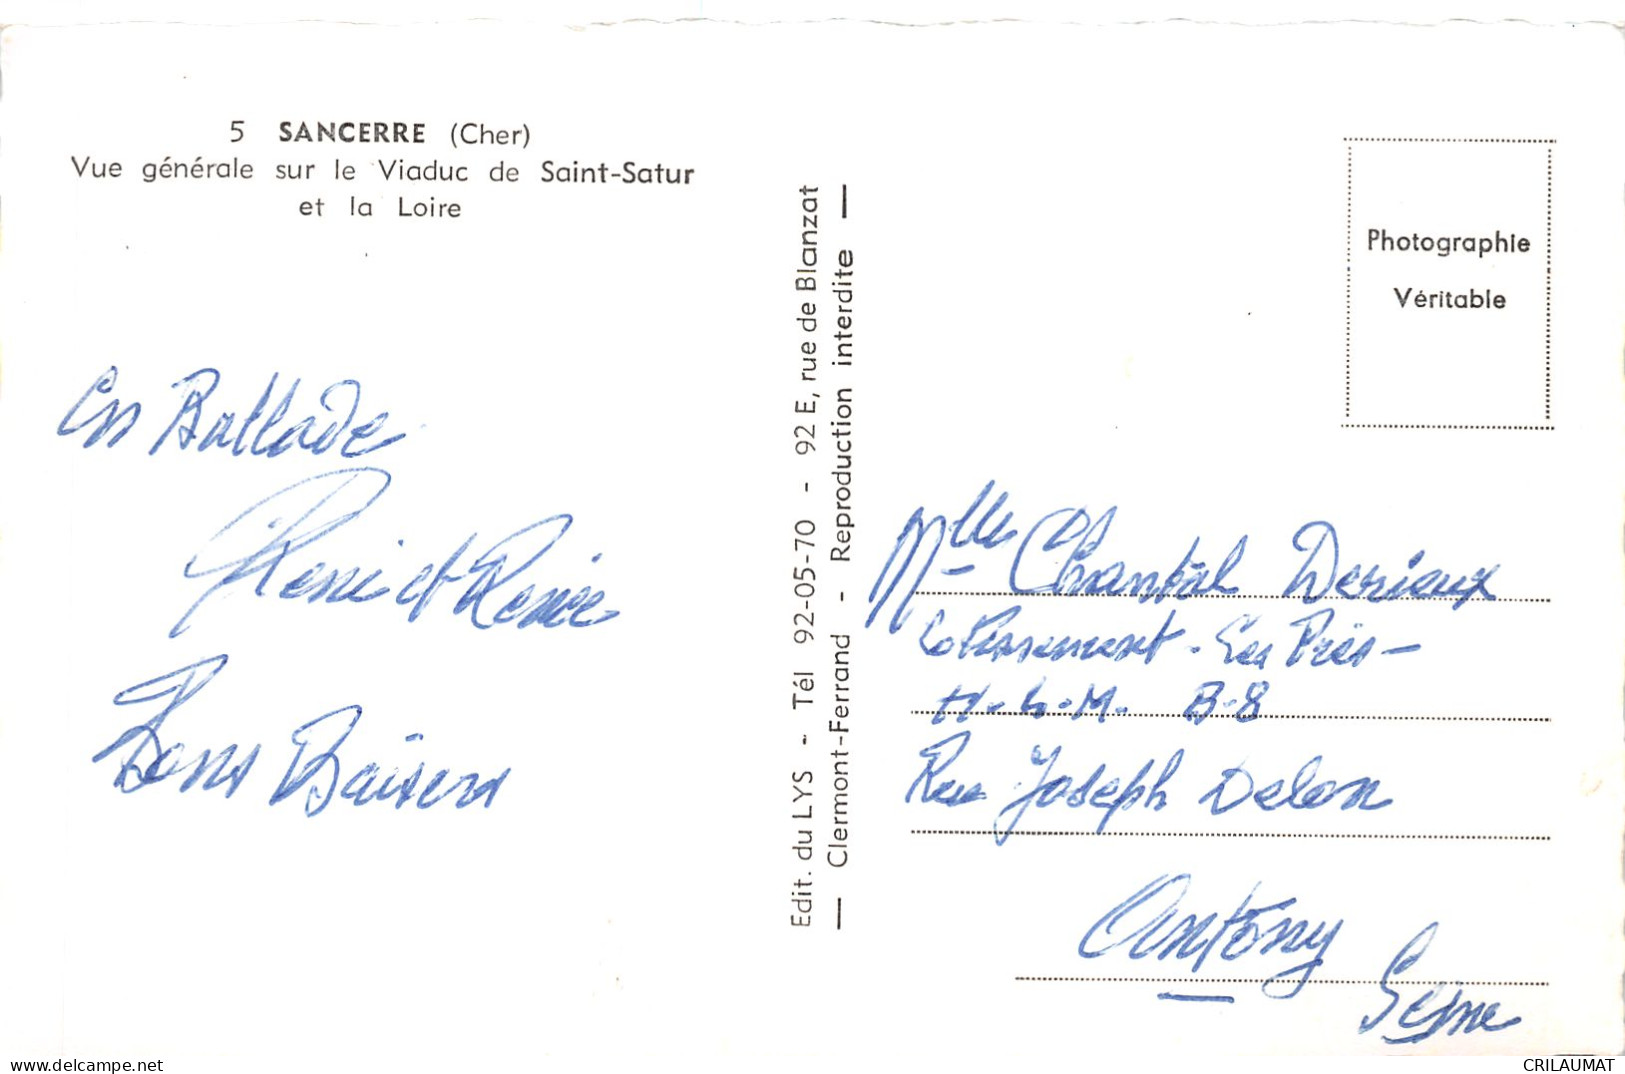 5 SANCERRE (Cher)
Vue générale sur le Viaduc de Saint-Satur
et la Loire
En Ballade
et Renée
Bons Baisers
Edit. du LYS - Tél 92-05-70 - 92 E, rue de Blanzat
— Clermont-Ferrand - Reproduction interdite —
Photographie
Véritable
Mlle Chantal Derieux
Lotissement - Les Près -
H-L-M. B-8
Rue Joseph Delon
Antony
Seine
www.delcampe.net
CRILAUMAT